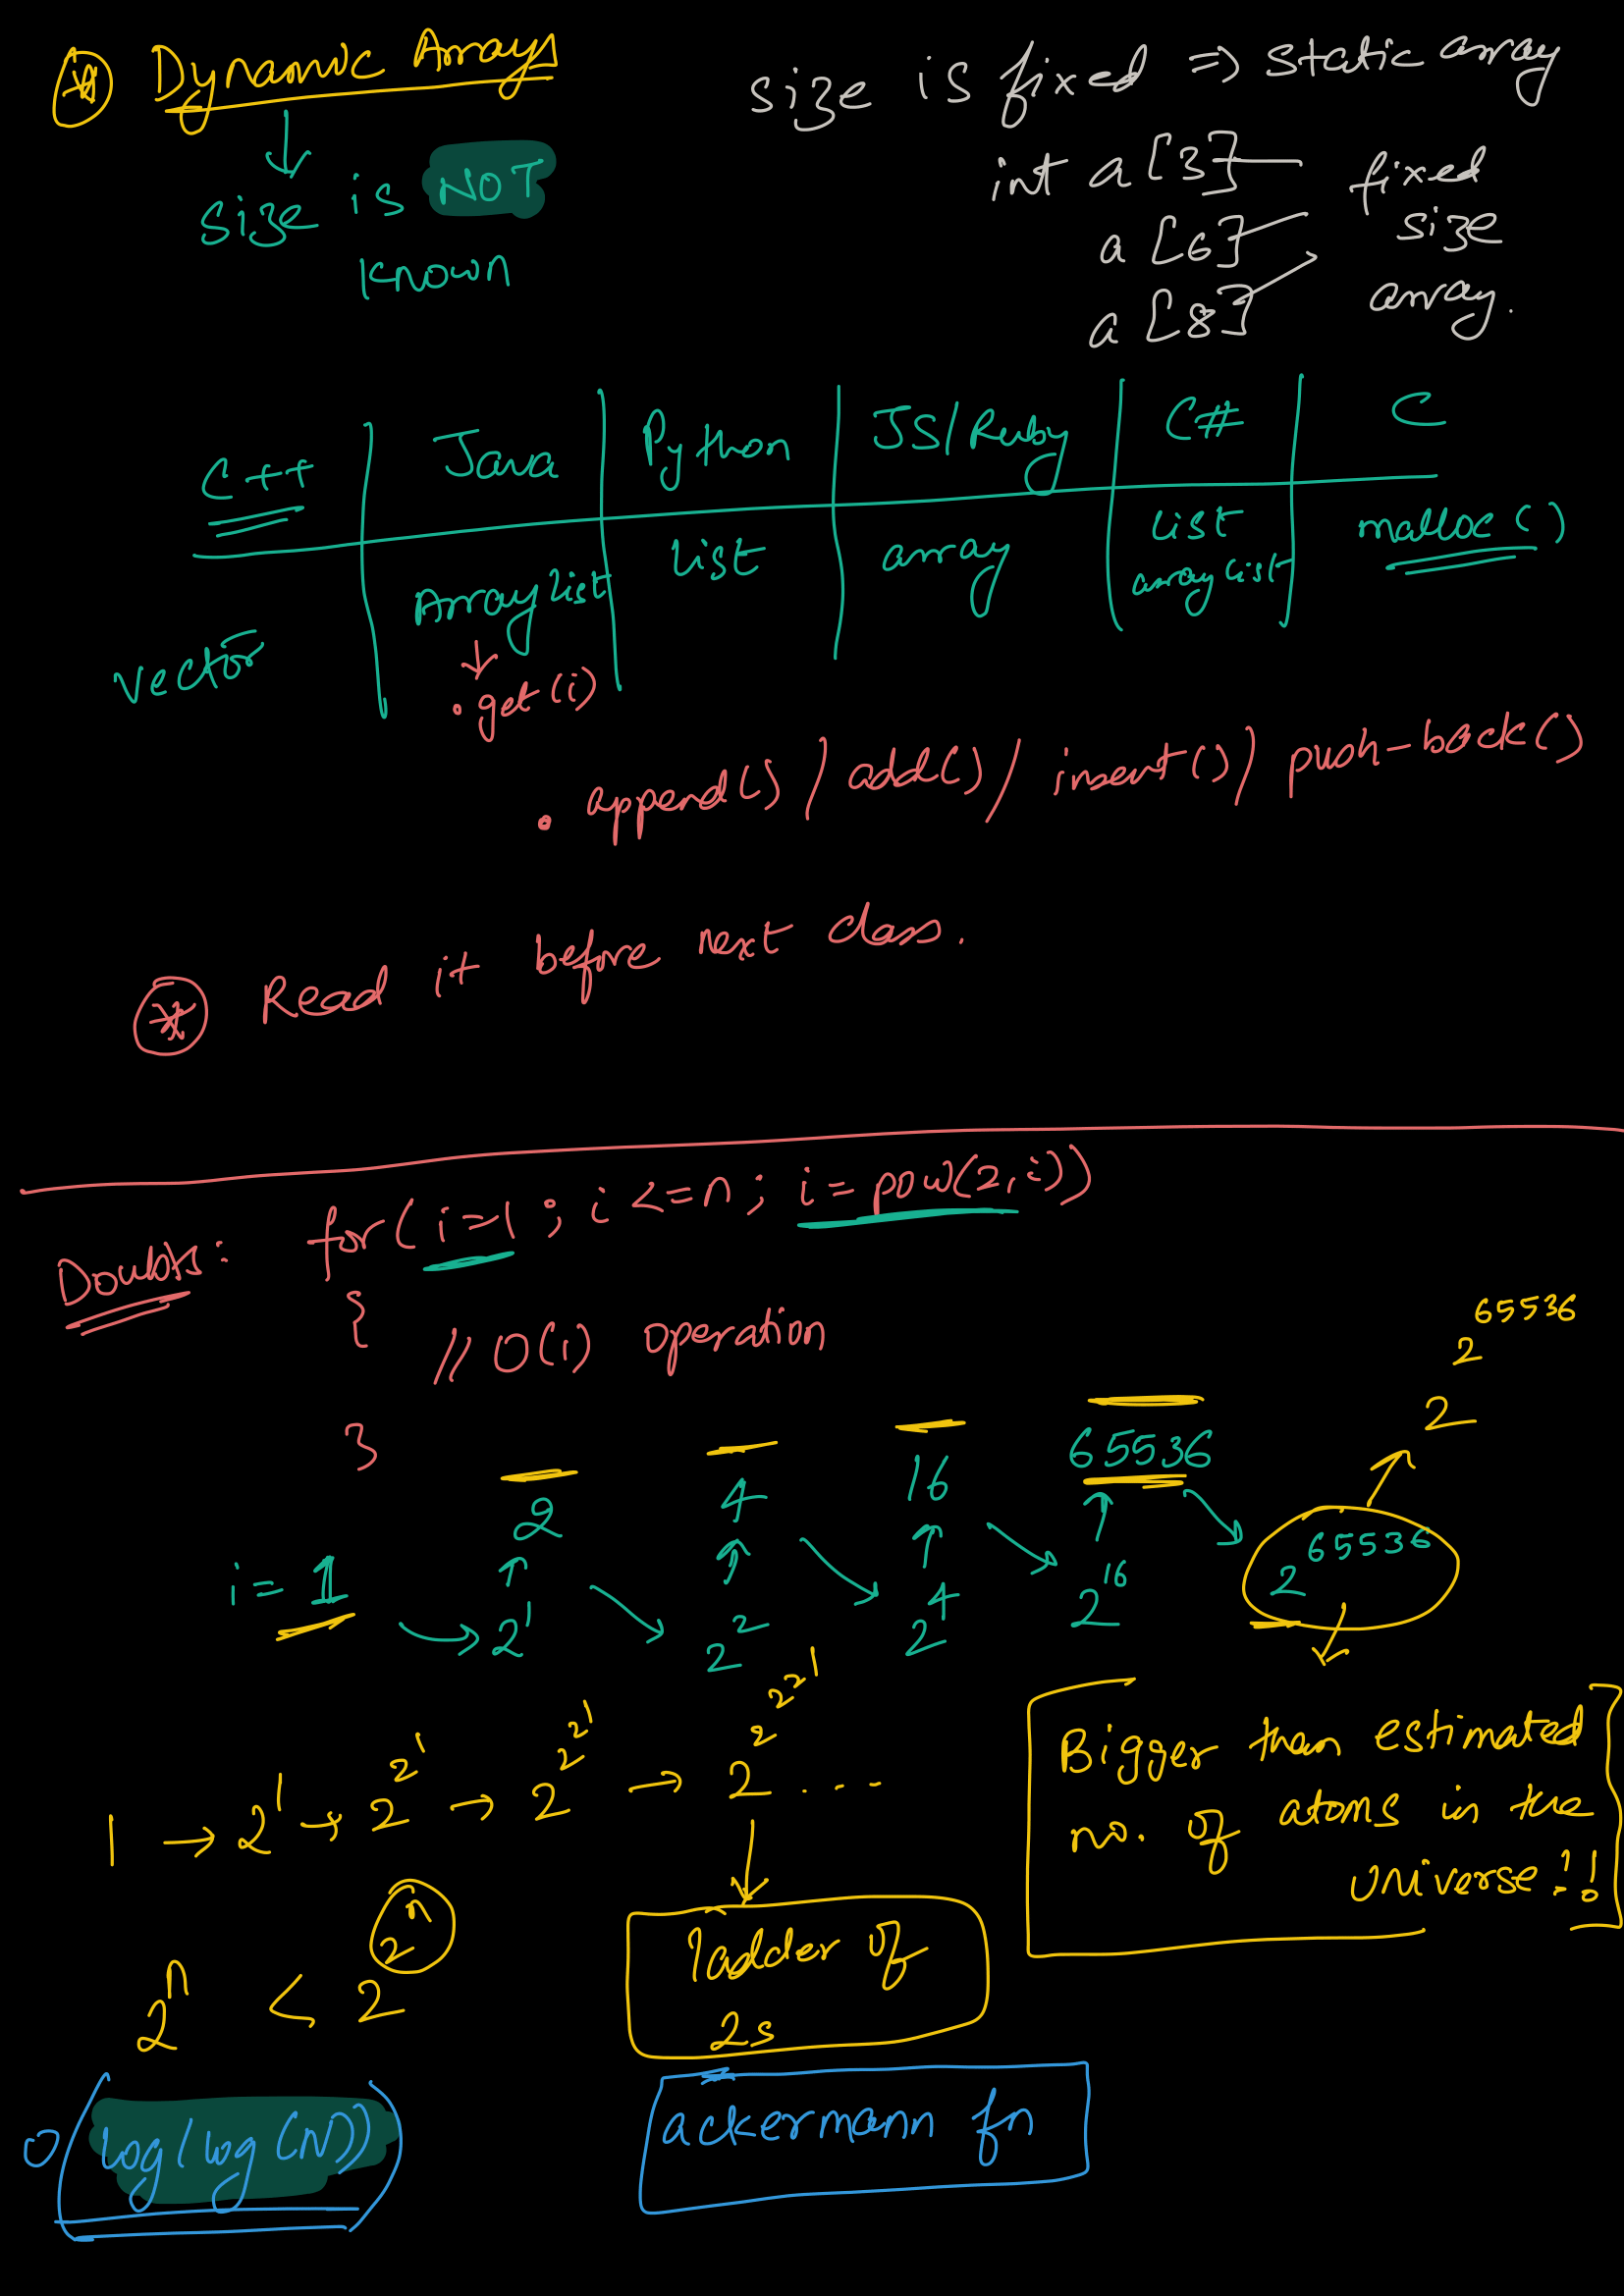 * Dynamic Arrays
size is NOT
known
size is fixed => static array
int a[3]
a[6]
a[8]
fixed
size
array.
C++ | Java | Python | JS/Ruby | C# | C
vector | Arraylist | list | array | list | malloc()
array list
.get(i)
. append() / add() / insert() / push-back()
* Read it before next class.
Doubts: for(i=1; i<=n; i=pow(2,i))
{
// O(1) operation
}
2 4 16 65536
2^2^65536
i = 1 → 2^1 2^2 2^4 2^16 2^65536
1 → 2^1 → 2^2^1 → 2^2^2^1 → 2^2^2^2^1 ...
Bigger than estimated
no. of atoms in the
universe!!
2^n < 2^2^n
ladder of
2s
O(log(log(N)))
ackermann fn